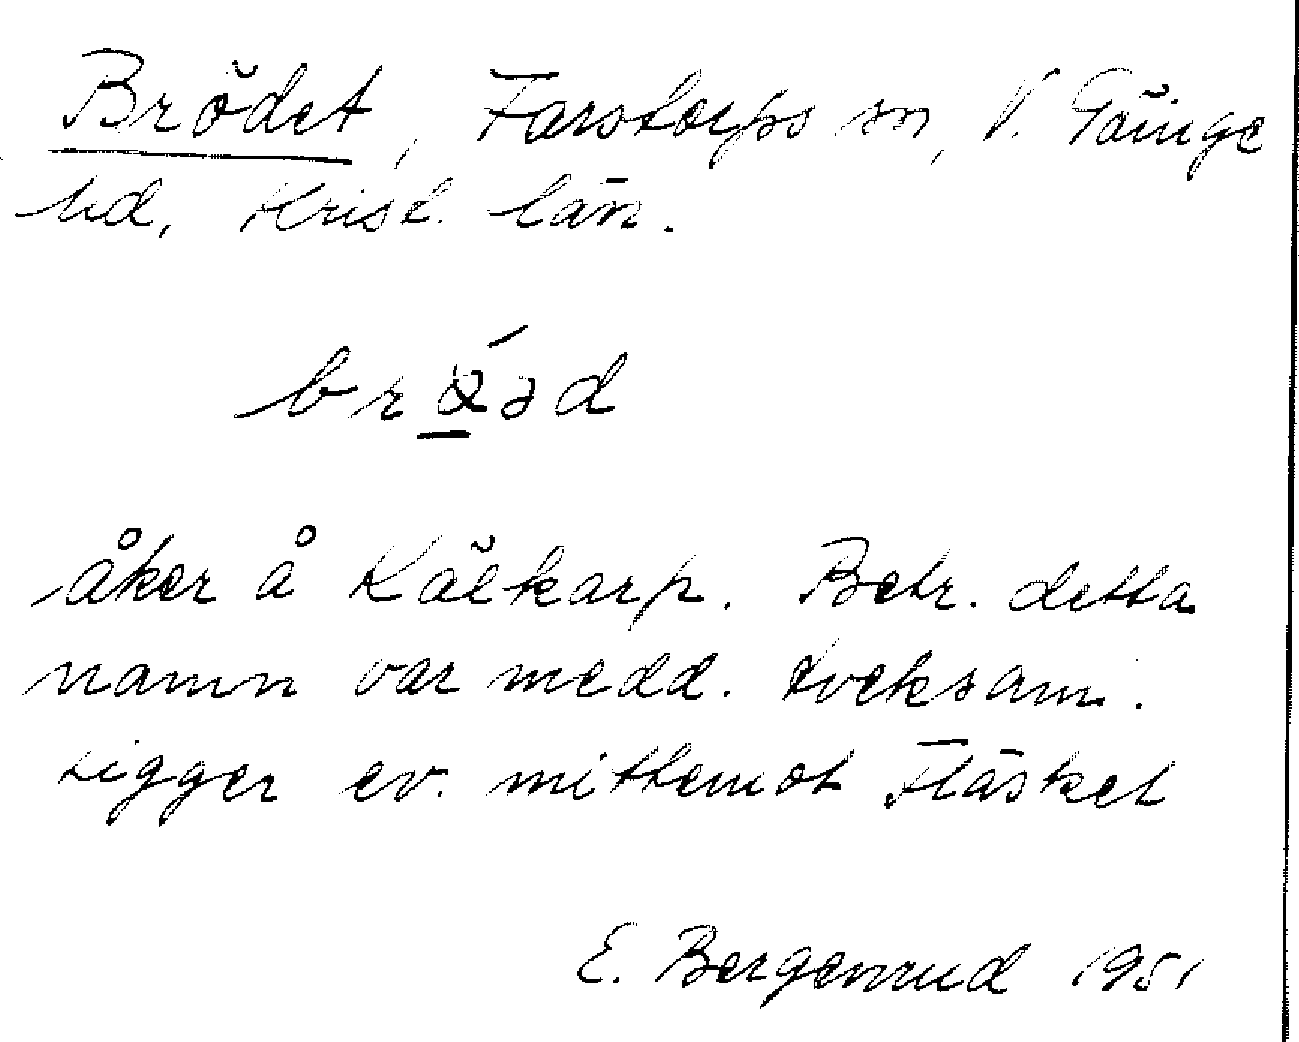 Brödet, Farstorps sn, V. Göinge
hd, Krist. län.
brǿəd
åker å Kälkarp. Betr. detta
namn var medd. tveksam.
Ligger ev. mittemot Fläsket
E. Bergenrud 1951